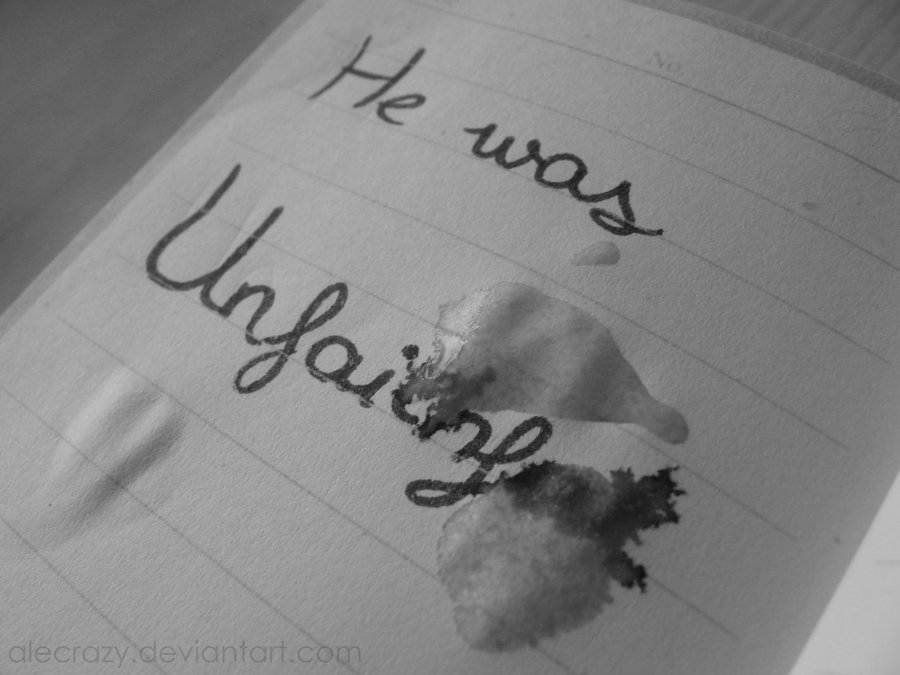 No.
He was
Unfaithful
alecrazy.deviantart.com